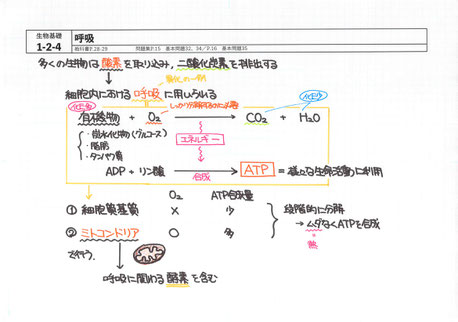 生物基礎
1-2-4
呼吸
教科書P.28,29 問題集P.15 基本問題32、34/P.16 基本問題35
多くの生物は酸素を取り込み、二酸化炭素を排出する
異化の一種
細胞内における呼吸に用いられる
しっかり分解するのに必要
有機物 + O₂ → CO₂ + H₂O
・炭水化物(グルコース)
・脂肪
・タンパク質
エネルギー
ADP + リン酸 → ATP = 様々な生命活動に利用
合成
O₂ ATP合成量
① 細胞質基質 × 少
② ミトコンドリア ○ 多
で行う.
段階的に分解
→ ムダなくATPを合成
熱
呼吸に関わる酵素を含む